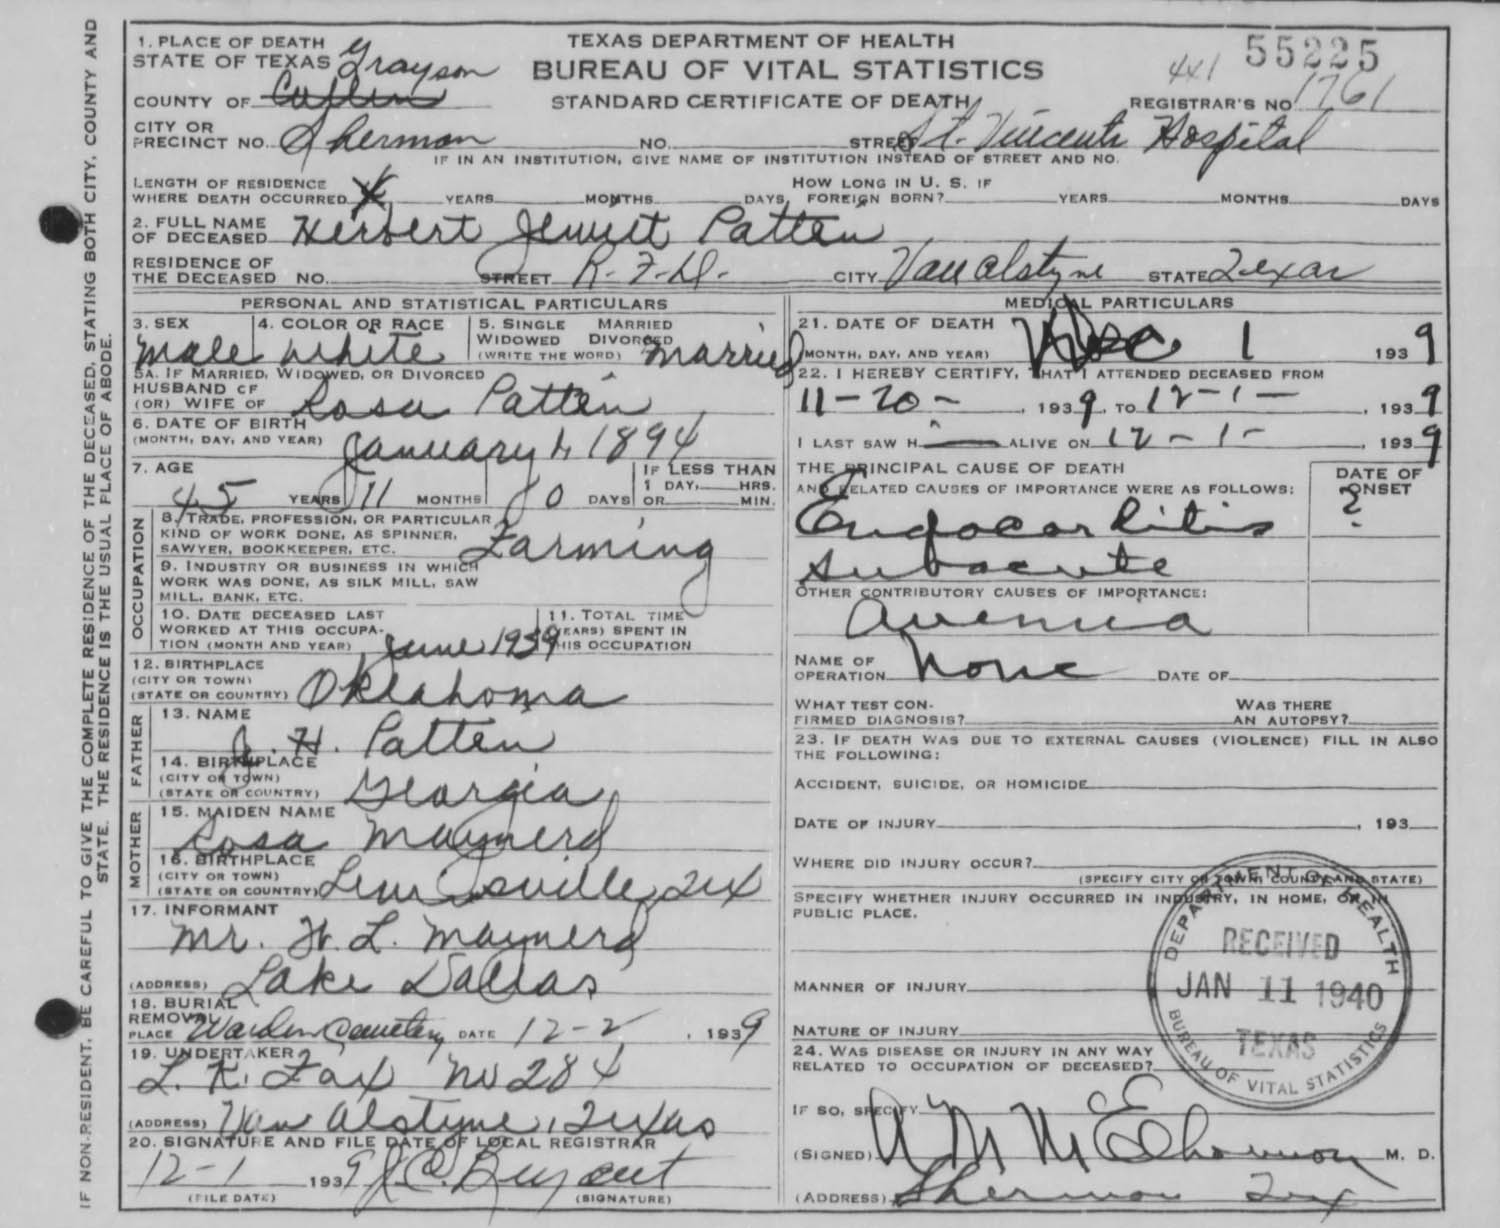 IF NON-RESIDENT, BE CAREFUL TO GIVE THE COMPLETE RESIDENCE OF THE DECEASED, STATING BOTH CITY, COUNTY AND
STATE. THE RESIDENCE IS THE USUAL PLACE OF ABODE.
TEXAS DEPARTMENT OF HEALTH
BUREAU OF VITAL STATISTICS
STANDARD CERTIFICATE OF DEATH
441 55225
REGISTRAR'S NO. 1761
1. PLACE OF DEATH
STATE OF TEXAS Grayson
COUNTY OF
CITY OR
PRECINCT NO. Sherman NO. STREET St. Vincents Hospital
IF IN AN INSTITUTION, GIVE NAME OF INSTITUTION INSTEAD OF STREET AND NO.
LENGTH OF RESIDENCE
WHERE DEATH OCCURRED YEARS MONTHS DAYS
HOW LONG IN U. S. IF
FOREIGN BORN? YEARS MONTHS DAYS
2. FULL NAME
OF DECEASED Herbert Jewist Patten
RESIDENCE OF
THE DECEASED NO. STREET R.F.D. CITY Van Alstyne STATE Texas
PERSONAL AND STATISTICAL PARTICULARS
3. SEX male
4. COLOR OR RACE white
5. SINGLE MARRIED
WIDOWED DIVORCED
(WRITE THE WORD) married
5A. IF MARRIED, WIDOWED, OR DIVORCED
HUSBAND OF
(OR) WIFE OF Rosa Patten
6. DATE OF BIRTH
(MONTH, DAY, AND YEAR) January 1894
7. AGE
45 YEARS 11 MONTHS 0 DAYS
IF LESS THAN
1 DAY, HRS.
OR MIN.
OCCUPATION
8. TRADE, PROFESSION, OR PARTICULAR
KIND OF WORK DONE, AS SPINNER,
SAWYER, BOOKKEEPER, ETC. Farming
9. INDUSTRY OR BUSINESS IN WHICH
WORK WAS DONE, AS SILK MILL, SAW
MILL, BANK, ETC.
10. DATE DECEASED LAST
WORKED AT THIS OCCUPA-
TION (MONTH AND YEAR) June 1939
11. TOTAL TIME
(YEARS) SPENT IN
THIS OCCUPATION
12. BIRTHPLACE
(CITY OR TOWN)
(STATE OR COUNTRY) Oklahoma
FATHER
13. NAME
J. H. Patten
14. BIRTHPLACE
(CITY OR TOWN)
(STATE OR COUNTRY) Georgia
MOTHER
15. MAIDEN NAME
Rosa Maynerd
16. BIRTHPLACE
(CITY OR TOWN)
(STATE OR COUNTRY) Lewisville Tex
17. INFORMANT
Mr. H. L. Maynerd
(ADDRESS) Lake Dallas
18. BURIAL
REMOVAL
PLACE Warden Cemetery DATE 12-2, 1939
19. UNDERTAKER
L. K. Fax No 284
(ADDRESS) Van Alstyne, Texas
20. SIGNATURE AND FILE DATE OF LOCAL REGISTRAR
12-1 1939 J.C. Bryant
(FILE DATE) (SIGNATURE)
MEDICAL PARTICULARS
21. DATE OF DEATH
(MONTH, DAY, AND YEAR) Dec 1 1939
22. I HEREBY CERTIFY, THAT I ATTENDED DECEASED FROM
11-20-, 1939, TO 12-1-, 1939
I LAST SAW H ALIVE ON 12-1-, 1939
THE PRINCIPAL CAUSE OF DEATH
AND RELATED CAUSES OF IMPORTANCE WERE AS FOLLOWS:
DATE OF
ONSET
?
Endocarditis
subacute
OTHER CONTRIBUTORY CAUSES OF IMPORTANCE:
Anemia
NAME OF
OPERATION None DATE OF
WHAT TEST CON-
FIRMED DIAGNOSIS?
WAS THERE
AN AUTOPSY?
23. IF DEATH WAS DUE TO EXTERNAL CAUSES (VIOLENCE) FILL IN ALSO
THE FOLLOWING:
ACCIDENT, SUICIDE, OR HOMICIDE
DATE OF INJURY , 193
WHERE DID INJURY OCCUR?
(SPECIFY CITY OR TOWN, COUNTY AND STATE)
SPECIFY WHETHER INJURY OCCURRED IN INDUSTRY, IN HOME, OR IN
PUBLIC PLACE.
MANNER OF INJURY
NATURE OF INJURY
24. WAS DISEASE OR INJURY IN ANY WAY
RELATED TO OCCUPATION OF DECEASED?
IF SO, SPECIFY
(SIGNED) A M McElhannon M. D.
(ADDRESS) Sherman Tex
DEPARTMENT OF HEALTH
RECEIVED
JAN 11 1940
TEXAS
BUREAU OF VITAL STATISTICS